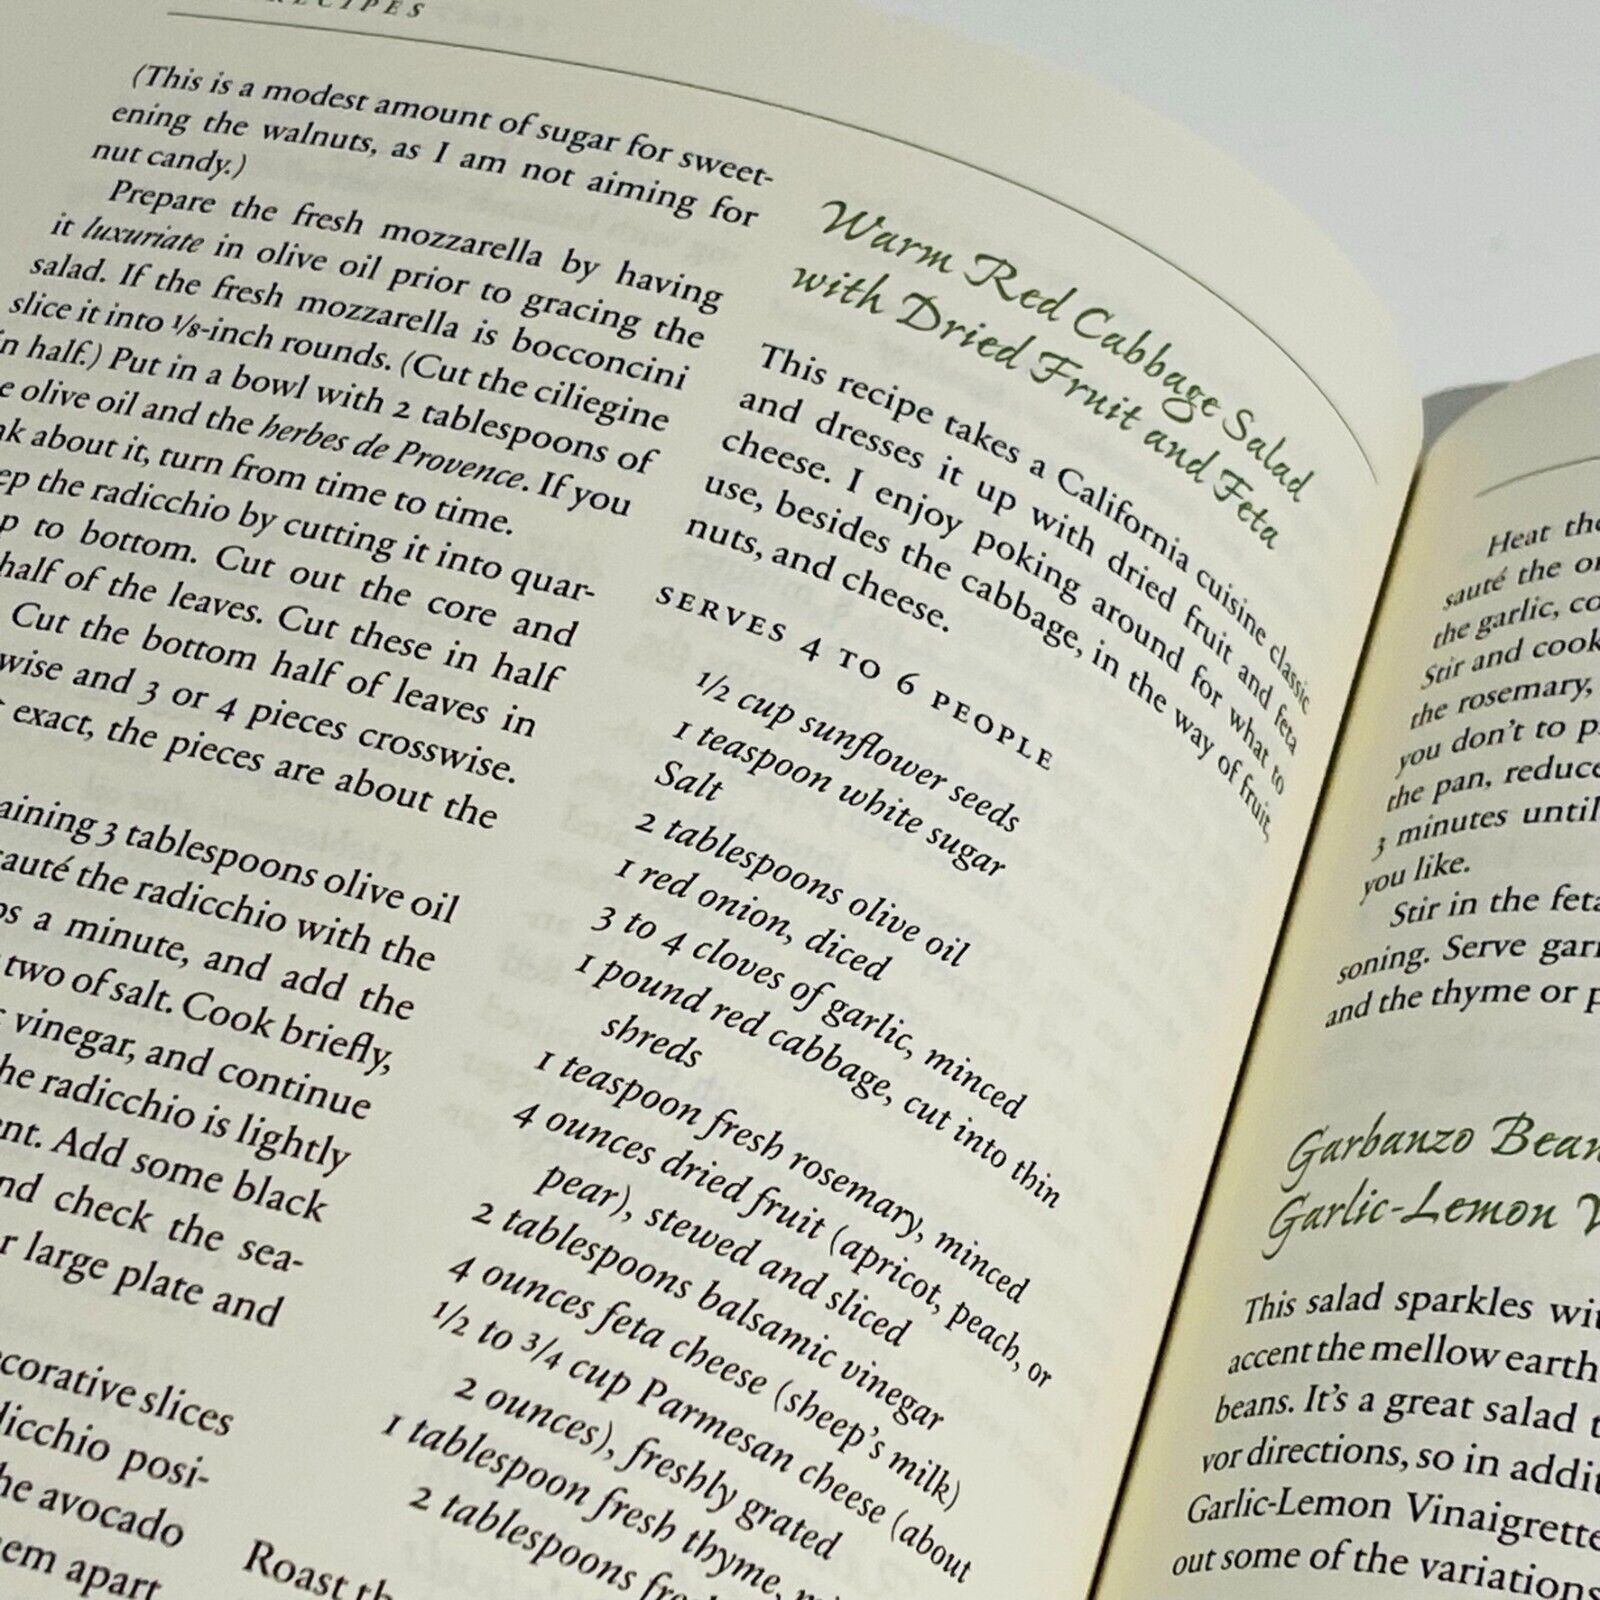 RECIPES
(This is a modest amount of sugar for sweet-
ening the walnuts, as I am not aiming for
nut candy.)
Prepare the fresh mozzarella by having
it luxuriate in olive oil prior to gracing the
salad. If the fresh mozzarella is bocconcini
slice it into 1/8-inch rounds. (Cut the ciliegine
in half.) Put in a bowl with 2 tablespoons of
olive oil and the herbes de Provence. If you
about it, turn from time to time.
the radicchio by cutting it into quar-
to bottom. Cut out the core and
half of the leaves. Cut these in half
Cut the bottom half of leaves in
wise and 3 or 4 pieces crosswise.
exact, the pieces are about the
aining 3 tablespoons olive oil
auté the radicchio with the
a minute, and add the
two of salt. Cook briefly,
vinegar, and continue
he radicchio is lightly
ent. Add some black
nd check the sea-
r large plate and
corative slices
dicchio posi-
he avocado
em apart
Warm Red Cabbage Salad
with Dried Fruit and Feta
This recipe takes a California cuisine classic
and dresses it up with dried fruit and feta
cheese. I enjoy poking around for what to
use, besides the cabbage, in the way of fruit,
nuts, and cheese.
SERVES 4 TO 6 PEOPLE
1/2 cup sunflower seeds
1 teaspoon white sugar
Salt
2 tablespoons olive oil
1 red onion, diced
3 to 4 cloves of garlic, minced
1 pound red cabbage, cut into thin
shreds
1 teaspoon fresh rosemary, minced
4 ounces dried fruit (apricot, peach, or
pear), stewed and sliced
2 tablespoons balsamic vinegar
4 ounces feta cheese (sheep's milk)
1/2 to 3/4 cup Parmesan cheese (about
2 ounces), freshly grated
1 tablespoon fresh thyme, mi
2 tablespoons fres
Roast th
Heat the
sauté the on
the garlic, co
Stir and cook
the rosemary,
you don't to p
the pan, reduce
3 minutes until
you like.
Stir in the feta
soning. Serve garn
and the thyme or p
Garbanzo Bean
Garlic-Lemon V
This salad sparkles wit
accent the mellow earth
beans. It's a great salad t
vor directions, so in addit
Garlic-Lemon Vinaigrette
out some of the variations